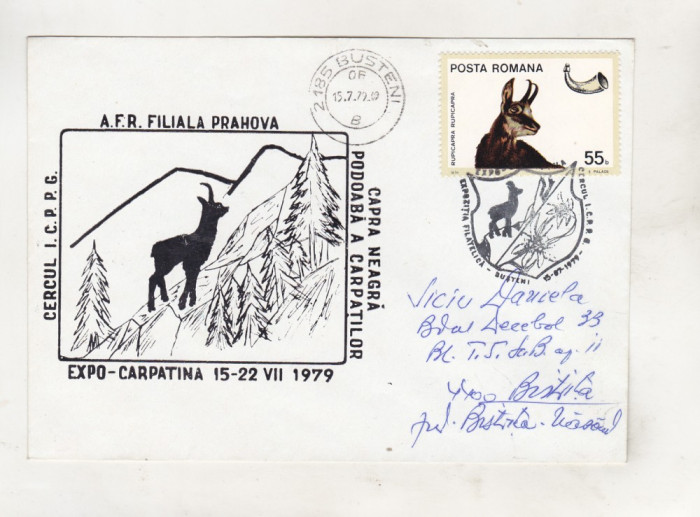 2185 BUSTENI
OF
15.7.79.
B
POSTA ROMANA
RUPICAPRA RUPICAPRA
55b
A.F.R. FILIALA PRAHOVA
CERCUL I.C.P.P.G.
CAPRA NEAGRĂ
PODOABĂ A CARPAȚILOR
EXPO-CARPATINA 15-22 VII 1979
EXPO
EXPOZIȚIA FILATELICĂ - BUSTENI 15-07-1979
CERCUL I.C.P.P.G.
Viciu Daniela
B-dul Decebal 33
Bl. T.S. Sc.B. ap. 11
4400 Bistrița
Jud. Bistrița-Năsăud